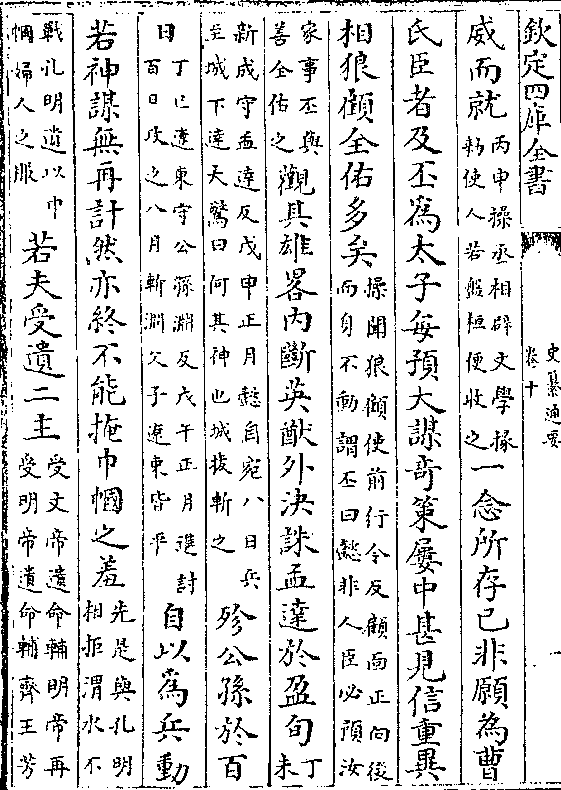 欽定四庫全書
史纂通要
卷十
威而就
丙申操丞相辟文學掾
勅使人若盤桓便收之
一念所存已非願為曹
氏臣者及丕為太子每預大謀竒策屢中甚見信重異
相狼顧全佑多矣
操聞狼顧使前行令反顧面正向後
而身不動謂丕曰懿非人臣必預汝
家事丕與
善全佑之
觀其雄畧内斷英猷外決誅孟達於盈旬
丁
未
新成守孟達反戊申正月懿自宛八日兵
至城下達天驚曰何其神也城拔斬之
殄公孫於百
日
丁巳遼東守公孫淵反戊午正月進討
百日攻之八月斬淵父子遼東皆平
自以為兵動
若神謀無再計然亦終不能掩巾幗之羞
先是與孔明
相拒渭水不
戰孔明遺以巾
幗婦人之服
若夫受遺二主
受文帝遺命輔明帝再
受明帝遺命輔齊王芳